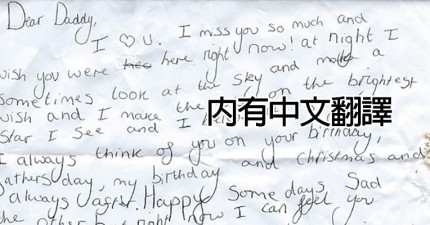 Dear Daddy,
I ♡ U. I miss you so much and
wish you were here right now! at night I
sometimes look at the sky and make a
wish and I make the on the brightest
star I see and I
内有中文翻譯
I always think of you on your birthday,
my birthday and Christmas and
athers day,
always after. Happy Some days Sad
the other but right now I can feel you